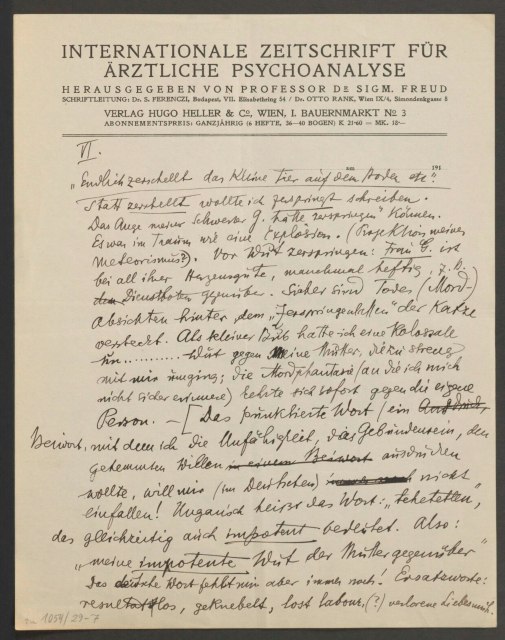 INTERNATIONALE ZEITSCHRIFT FÜR
ÄRZTLICHE PSYCHOANALYSE
HERAUSGEGEBEN VON PROFESSOR DR SIGM. FREUD
SCHRIFTLEITUNG: Dr. S. FERENCZI, Budapest, VII. Elisabethring 54 / Dr. OTTO RANK, Wien IX/4, Simondenkgasse 8
VERLAG HUGO HELLER & Co, WIEN, I. BAUERNMARKT No 3
ABONNEMENTSPREIS: GANZJÄHRIG (6 HEFTE, 36—40 BOGEN) K 21·60 — MK. 18·—
VI.
am 191
„Endlich zerschellt das kleine Tier auf dem Boden etc."
Statt zerschellt wollte ich zerspringt schreiben.
Das Auge meiner Schwester G. hätte „zerspringen" können.
Etwas im Traum wie eine Explosion. (Projektion meines
Meteorismus?). Vor Wut zerspringen: Frau G. ist
bei all ihrer Herzensgüte, manchmal heftig, z. B.
den Dienstboten gegenüber. Sicher sind Todes (Mord-)
absichten hinter dem „Zerspringenlassen" der Katze
versteckt. Als kleiner Bub hatte ich eine kolossale
un.......... Wut gegen meine Mutter, die zu streng
mit mir umging; die Mordphantasie (an die ich mich
nicht sicher erinnere) kehrte sich sofort gegen die eigene
Person. — [Das punktierte Wort (ein Ausdruck,
Beiwort, mit dem ich die Unfähigkeit, das Gebundensein, den
gehemmten Willen in einem Beiwort ausdrücken
wollte, will mir (im Deutschen) nicht
einfallen! Ungarisch heisst das Wort: „tehetetlen",
das gleichzeitig auch impotent bedeutet. Also:
„meine impotente Wut der Mutter gegenüber"
Das deutsche Wort fehlt mir aber immer noch! Ersatzworte:
resultatlos, geknebelt, lost labour (?) verlorene Liebesmüh.
1054/29-7